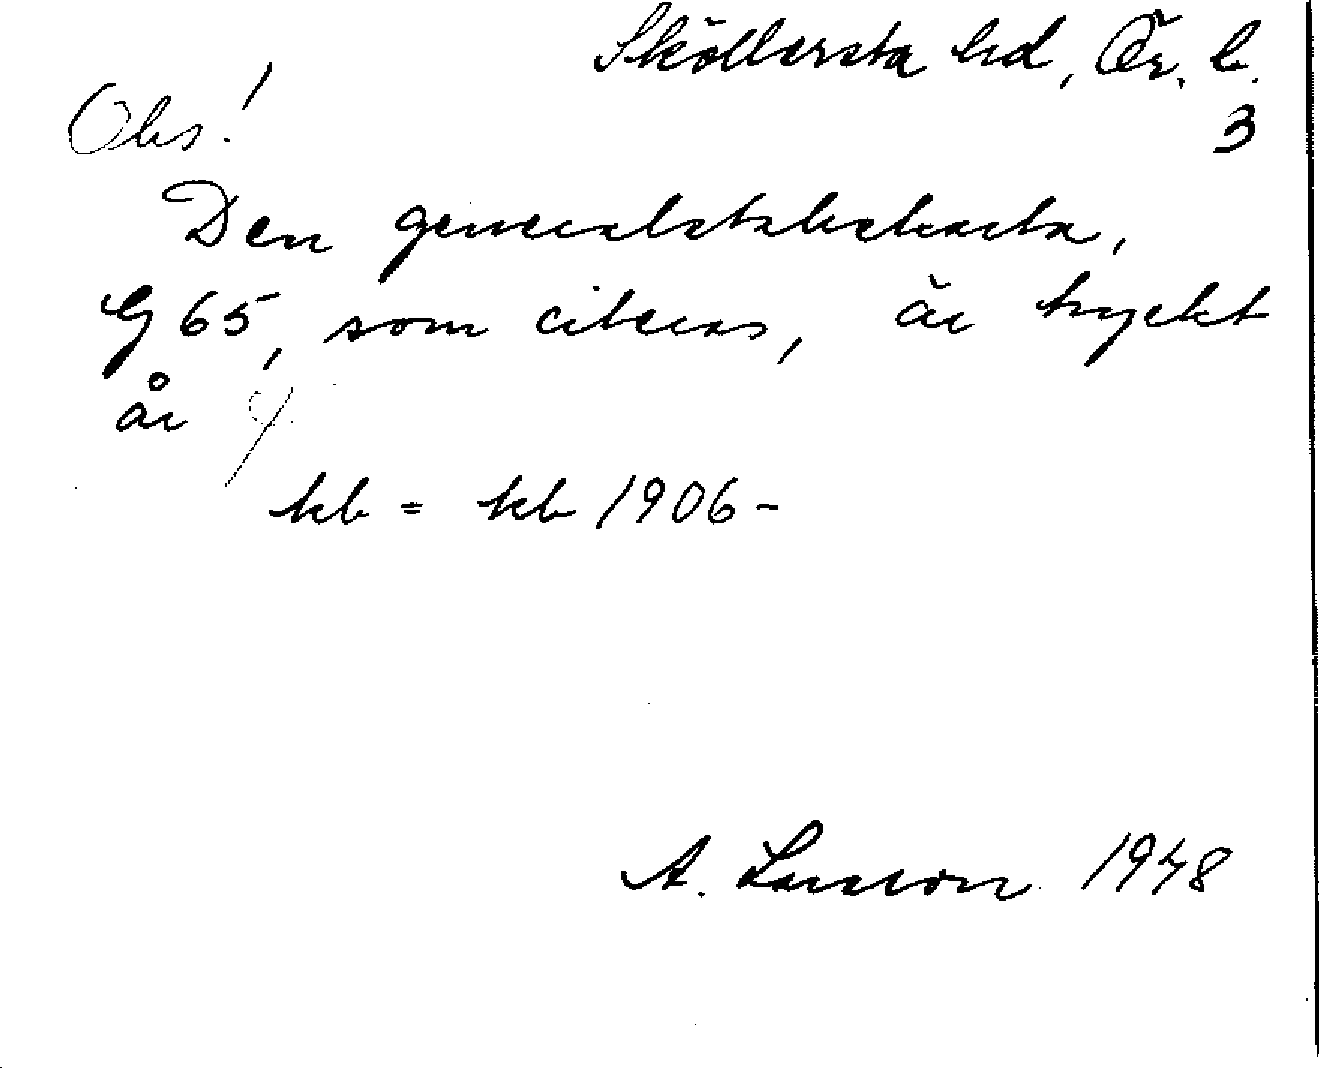 Sköllersta hd, Ör. l.
3
Obs!
Den generalstabskarta,
G 65, som citeras, är tryckt
år
kb = kb 1906-
A. Larsson 1948